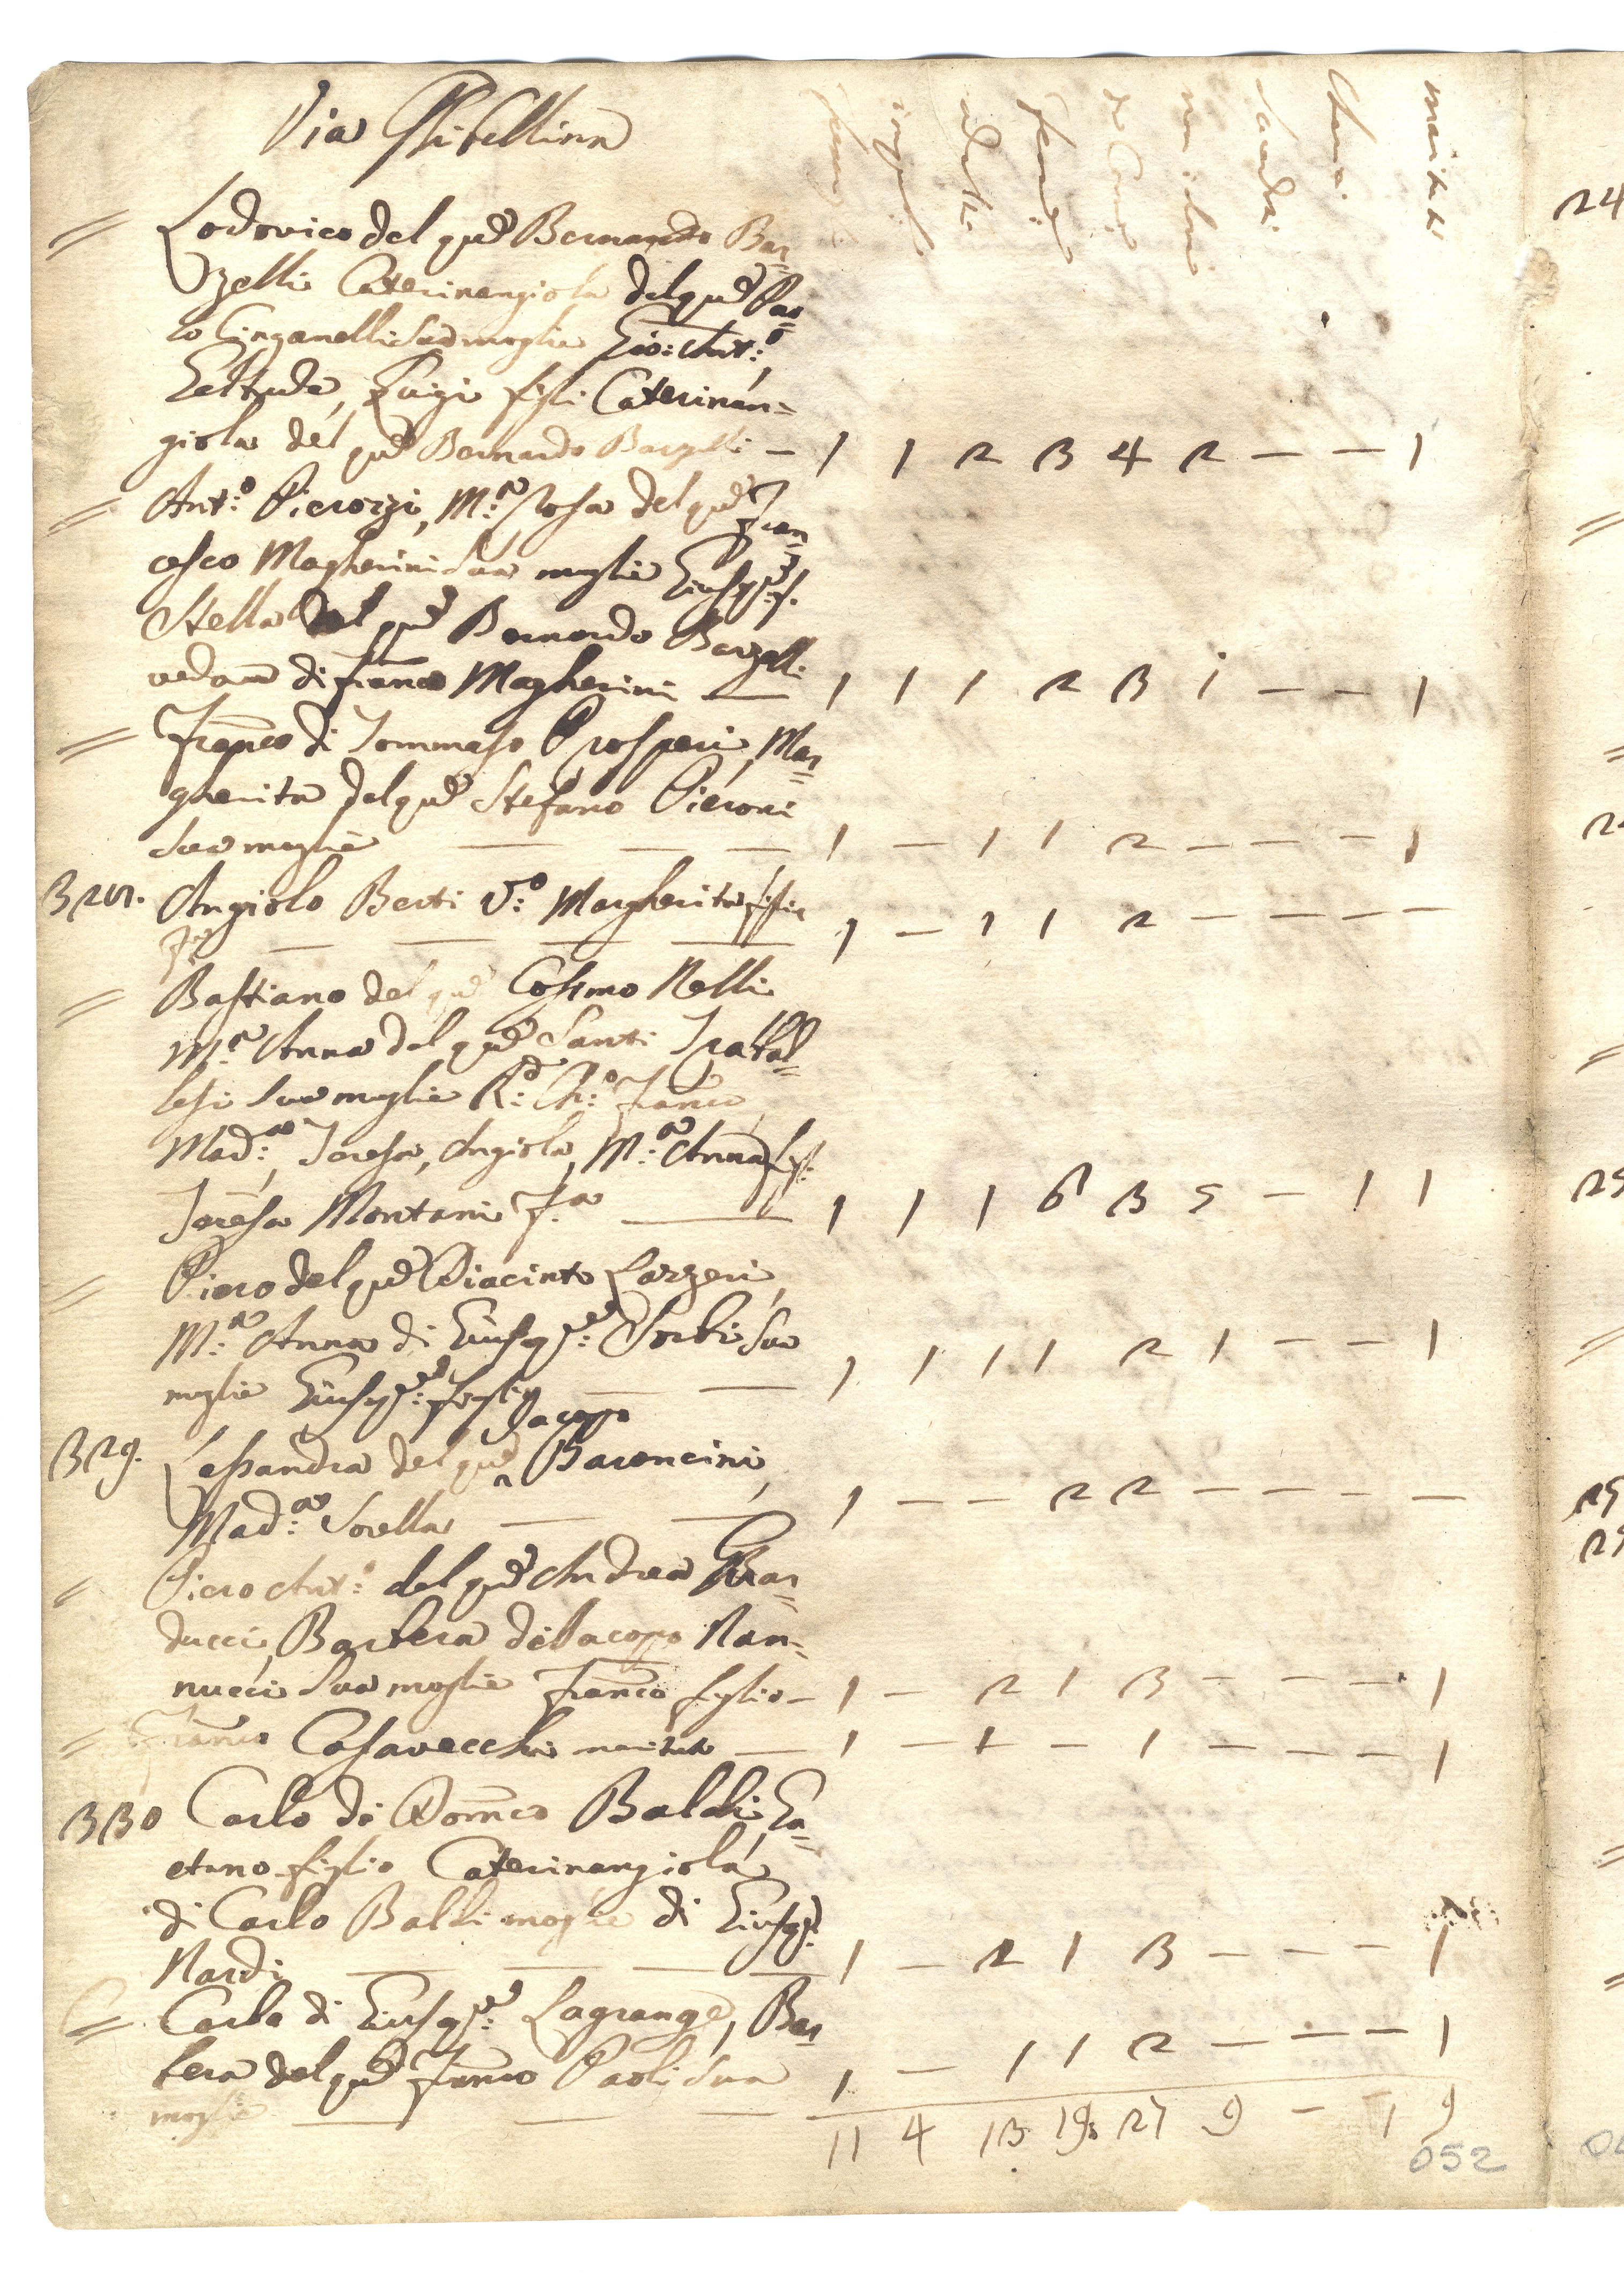 Via Ghibellina
Lodovico del qm Bernardo Bar=
gelli Caterinangiola del qm Pao=
lo Cinganelli sua moglie Gio: Ant:o
Geltrude, Luigi figli Caterinan=
giola del qm Bernardo Bargelli — 1 1 2 3 4 2 — — 1
= Ant:o Pierozzi, M:a Rosa del qm Fran=
cesco Magherini sua moglie Gius:e f.
Stella del qm Bernardo Bargelli
ved:a di Franco Magherini — 1 1 1 2 3 1 — — 1
= Franco di Tommaso Prosperi, Mar=
gherita del qm Stefano Pieroni
sua moglie — — — 1 — 1 1 2 — — — 1
Angiolo Berti V:o Margherita figlia
— — — — 1 — 1 1 2 — — — —
= Bastiano del qm Cosimo Nelli
M:a Anna del qm Santi
lesi sua moglie R:d Ch:o Franco
Mad:a, Teresa, Angiola, M:a Anna f.
Teresa Montani f.a — 1 1 1 6 3 5 — 1 1
= Piero del qm Diacinto Lazzeri,
M:a Anna di Giusep:e Sorbi sua
moglie Giusep:e figlio — — 1 1 1 1 2 1 — — 1
Jacopo
329. Lessandra del qm ^ Baroncini,
Mad:a Sorella — — 1 — — 2 2 — — — —
= Piero Ant:o del qm Andrea Gar=
ducci, Barbera di Jacopo Nan=
nucci sua moglie Franco figlio — 1 — 2 1 3 — — — 1
= Franco Casavecchi maritato — 1 — 1 — 1 — — — 1
330 Carlo di Domco Baldi, Ga=
etano figlio Caterinangiola
di Carlo Baldi moglie di Giusep:e
Nardi — — — — 1 — 2 1 3 — — — 1
= Carlo di Giusep:e Lagrange, Bar
bera del qm Franco Paoli sua
moglie — — — 1 — 1 1 2 — — — 1
11 4 13 19 27 9 — 1 9
052